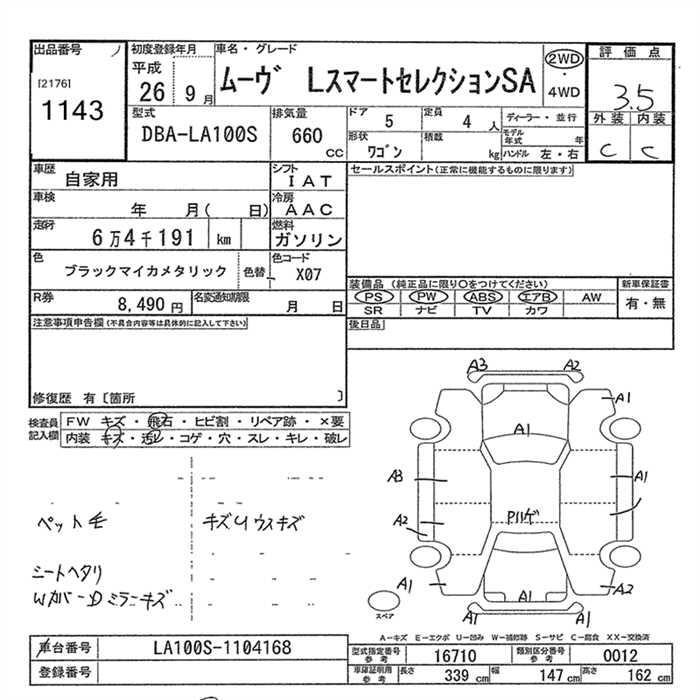 出品番号
[2176]
1143
初度登録年月
平成
26 9月
車名・グレード
ムーヴ LスマートセレクションSA
2WD
・
4WD
評価点
3.5
外装 内装
C C
型式
DBA-LA100S
排気量
660 CC
ドア
5
定員
4 人
ディーラー・並行
形状
ワゴン
積載
kg
モデル年式 年
ハンドル 左・右
車歴
自家用
シフト
IAT
車検
年 月( 日)
冷房
AAC
走行
6万4千191 km
燃料
ガソリン
色
ブラックマイカメタリック
色替
色コード
X07
R券
8,490 円
名変通知期限
月 日
セールスポイント(正常に機能するものに限ります)
装備品 (純正品に限り〇をつけてください)
新車保証書
PS PW ABS エアB AW
有・無
SR ナビ TV カワ
後日品
注意事項申告欄 (不具合内容等は具体的に記入して下さい)
修復歴 有〔箇所 〕
検査員記入欄
FW キズ・飛石・ヒビ割・リペア跡・×要
内装 キズ・汚レ・コゲ・穴・スレ・キレ・破レ
ペット毛
キズ
シートヘタリ
WカバーDミラーキズ
A3 A2
A1
A1
A3 A1
A2
A1 A1 A2
A1 A1
スペア
A-キズ E-エクボ U-凹み W-補修跡 S-サビ C-腐食 XX-交換済
車台番号
LA100S-1104168
登録番号
型式指定番号 参考
16710
類別区分番号 参考
0012
車庫証明用 参考
長さ 339 cm
幅 147 cm
高さ 162 cm